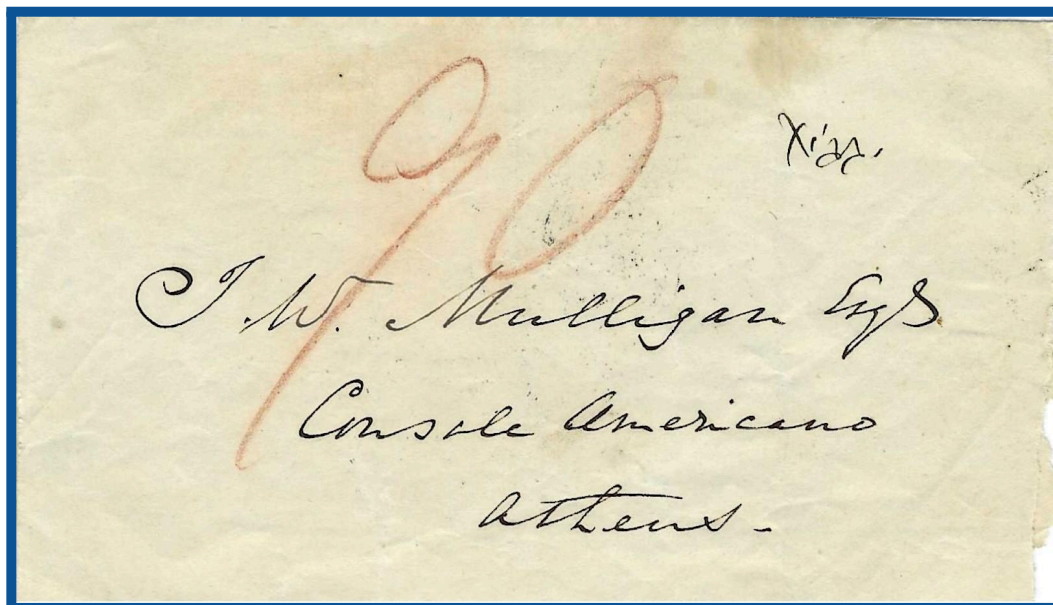 90
J. W. Mulligan Esq
Console Americano
Athens-